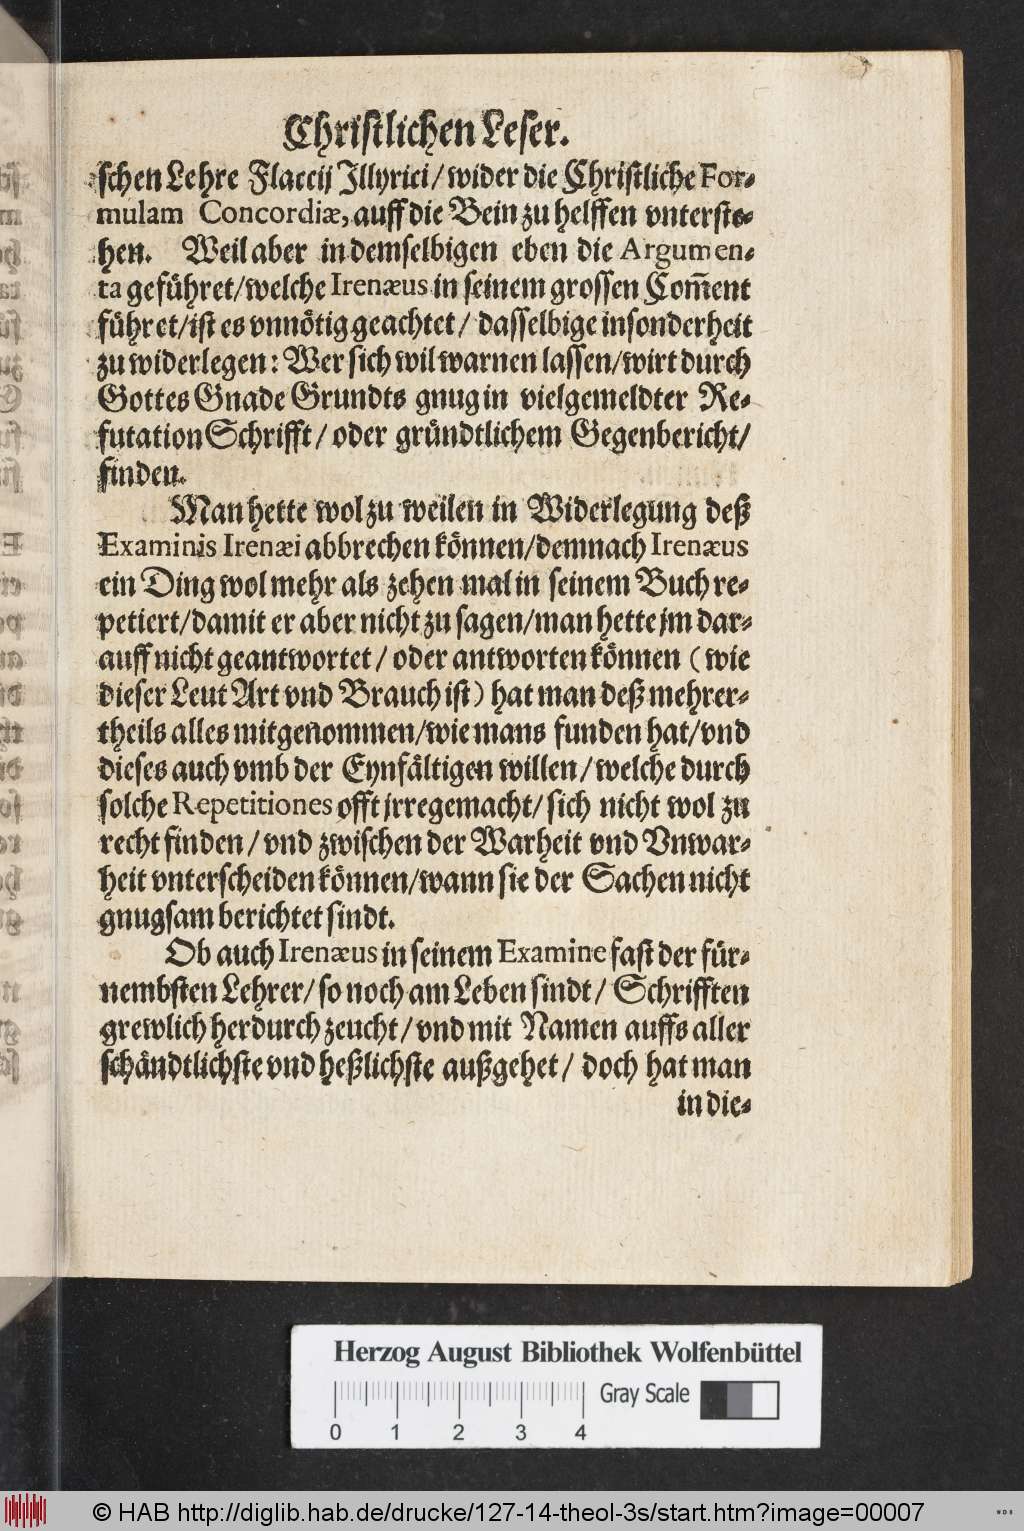 Christlichen Leser.
schen Lehre Flaccij Jllyrici/ wider die Christliche For-
mulam Concordiæ, auff die Bein zu helffen vnterste-
hen. Weil aber in demselbigen eben die Argumen-
ta geführet/welche Irenæus in seinem grossen Com̃ent
führet/ist es vnnötig geachtet/ dasselbige insonderheit
zu widerlegen: Wer sich wil warnen lassen/wirt durch
Gottes Gnade Grundts gnug in vielgemeldter Re-
futation Schrifft/ oder gründtlichem Gegenbericht/
finden.
Man hette wol zu weilen in Widerlegung deß
Examinis Irenæi abbrechen können/demnach Irenæus
ein Ding wol mehr als zehen mal in seinem Buch re-
petiert/damit er aber nicht zu sagen/man hette jm dar-
auff nicht geantwortet/ oder antworten können (wie
dieser Leut Art vnd Brauch ist) hat man deß mehrer-
theils alles mitgenommen/wie mans funden hat/vnd
dieses auch vmb der Eynfältigen willen/welche durch
solche Repetitiones offt jrregemacht/ sich nicht wol zu
recht finden/ vnd zwischen der Warheit vnd Vnwar-
heit vnterscheiden können/wann sie der Sachen nicht
gnugsam berichtet sindt.
Ob auch Irenæus in seinem Examine fast der für-
nembsten Lehrer/ so noch am Leben sindt/ Schrifften
grewlich herdurch zeucht/ vnd mit Namen auffs aller
schändtlichste vnd heßlichste außgehet/ doch hat man
in die-
Herzog August Bibliothek Wolfenbüttel
Gray Scale
0 1 2 3 4
© HAB http://diglib.hab.de/drucke/127-14-theol-3s/start.htm?image=00007